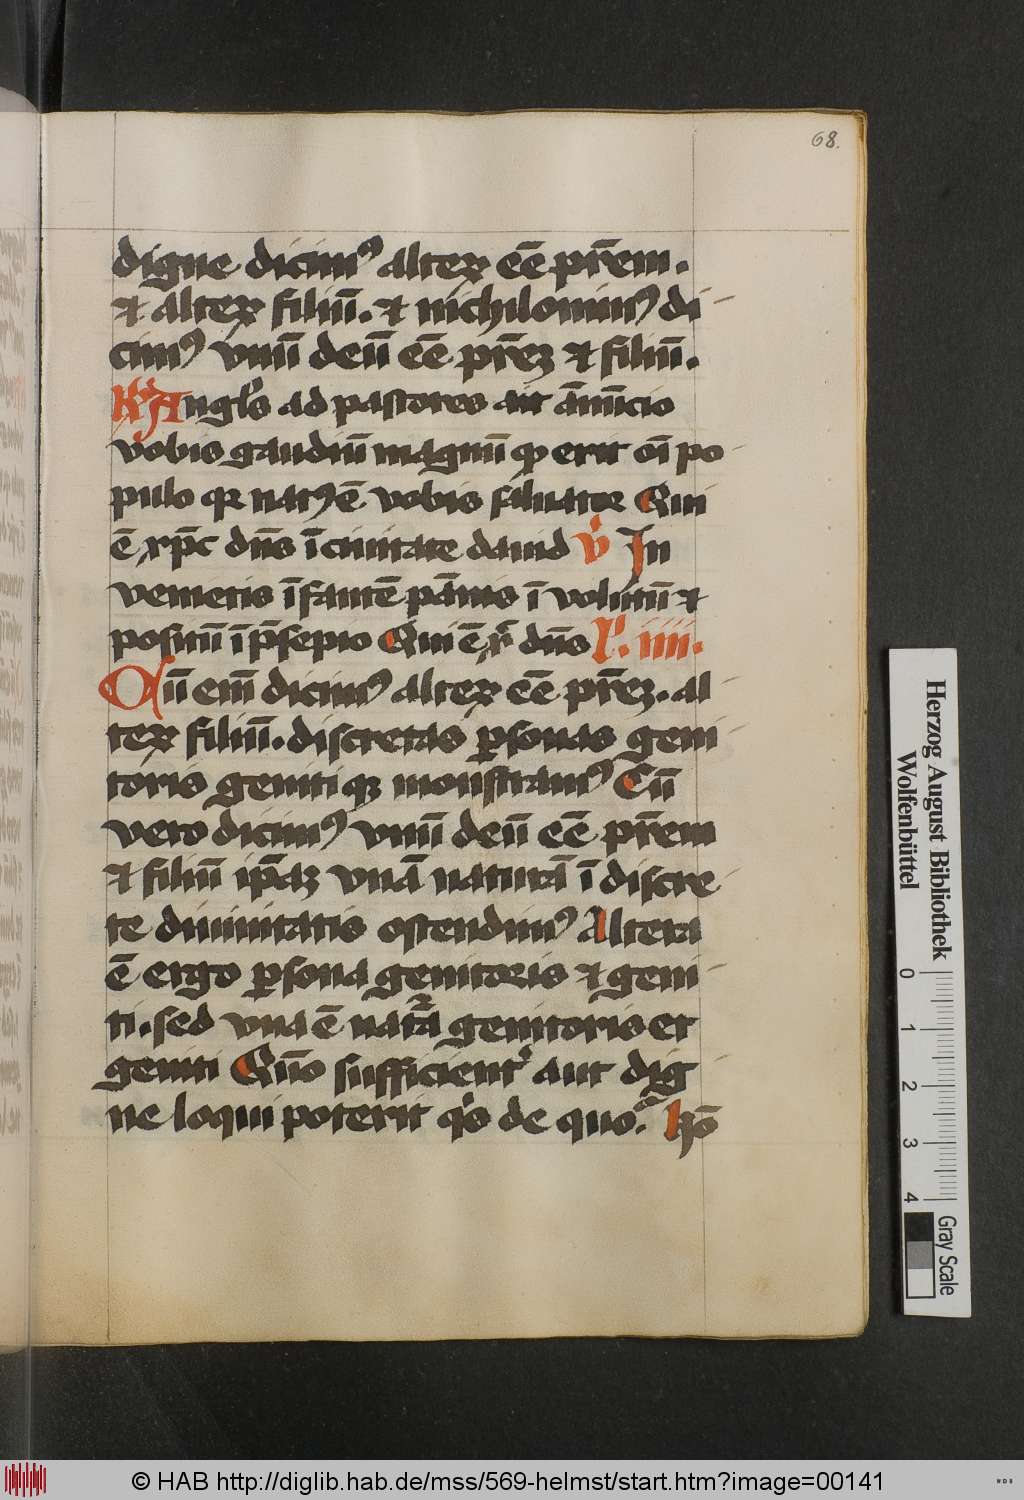 68.
digne dicim⁹ alteꝝ eē pr̄em.
⁊ alteꝝ filiū. ⁊ nichilomin⁹ di
cim⁹ vnū deū eē pr̄eꝫ ⁊ filiū.
Angl̓s ad pastores ait ānūcio
vobis gaudiū magnū erit oī po
pulo nat⁹ ē vobis saluator Qui
ē xp̄c dn̄s ī ciuitate dauid v̓ In
venietis īfantē pānis ī volutū ⁊
positū ī p̄sepio Qui ē dn̄s l̓. iiii.
Cū em̄ dicim⁹ alteꝝ eē pr̄eꝫ. al
teꝝ filiū. discretas ꝑsonas geni
toris geniti qꝫ monstram⁹ Cū
vero dicim⁹ vnū deū eē pr̄em
⁊ filiū ip̄aꝫ vnā naturā ī discre
te diuinitatis ostendim⁹ Altera
ē ergo ꝑsona genitoris ⁊ geni
ti. sed vna ē genitoris et
geniti Quō sufficient̓ aut dig
ne loqui poterit q̓s de quo.
Herzog August Bibliothek
Wolfenbüttel
0 1 2 3 4
Gray Scale
© HAB http://diglib.hab.de/mss/569-helmst/start.htm?image=00141